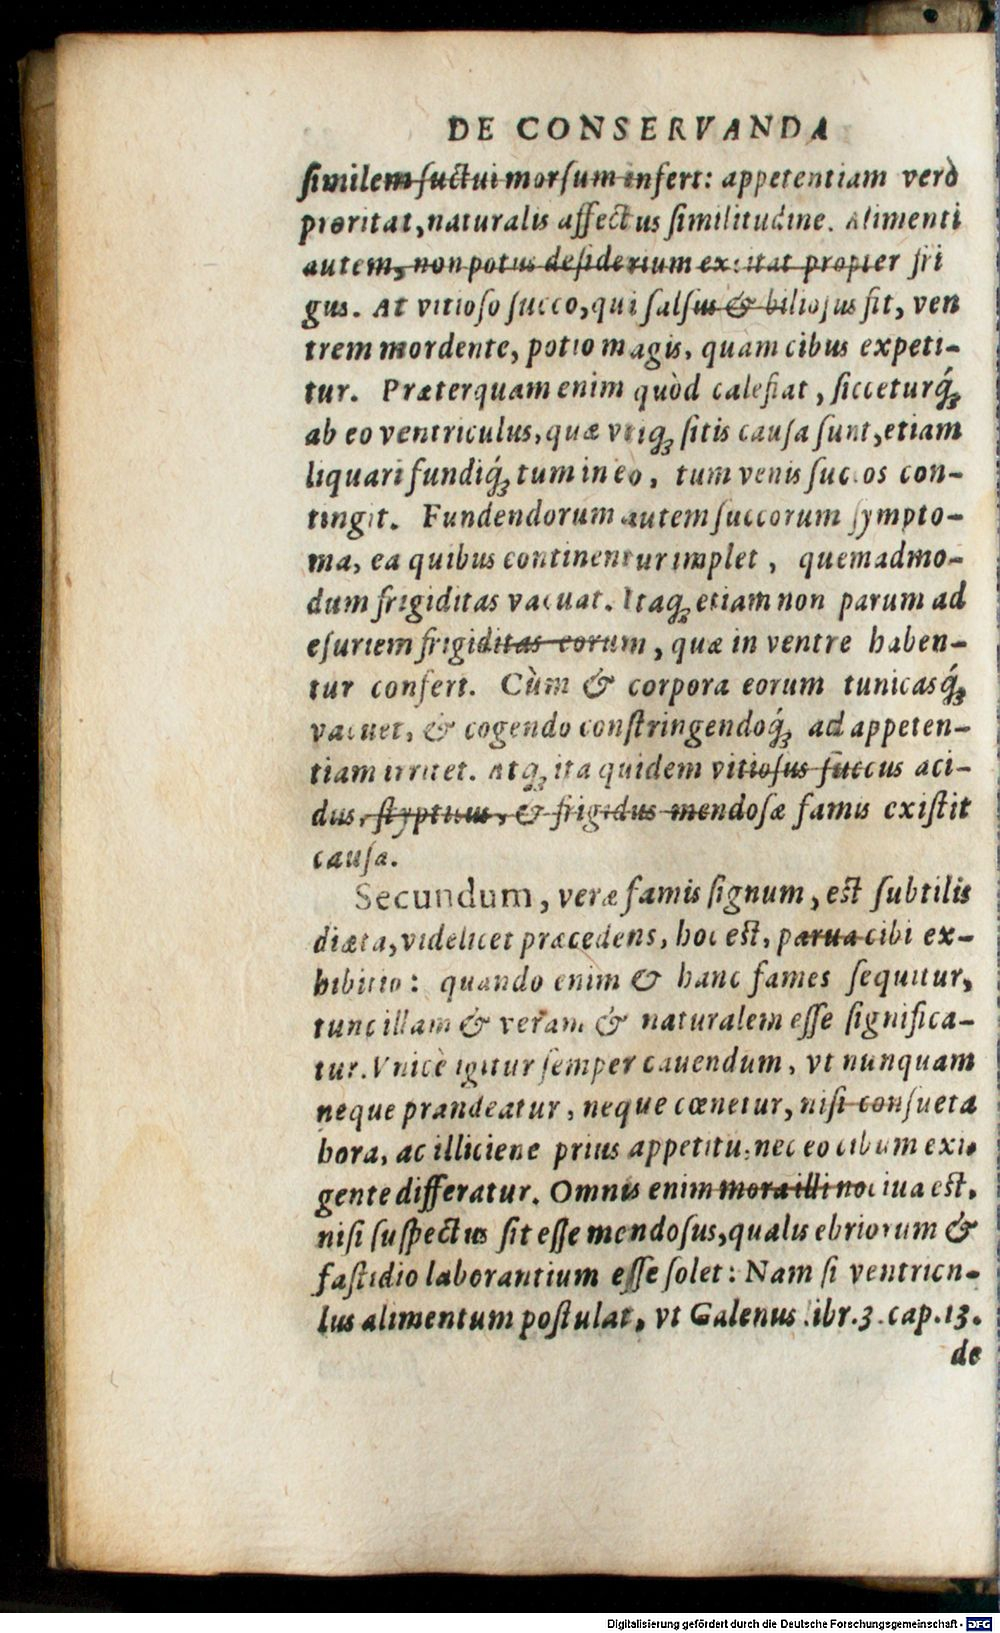 DE CONSERVANDA
ſimilem ſuctui morſum infert: appetentiam verò
proritat, naturalis affectus ſimilitudine. Alimenti
autem, non potus deſiderium excitat propter fri
gus. At vitioſo ſucco, qui ſalſus & bilioſus ſit, ven
trem mordente, potio magis, quàm cibus expeti-
tur. Præterquam enim quòd calefiat, ſicceturq́ꝫ
ab eo ventriculus, quæ vtiqꝫ ſitis cauſa ſunt, etiam
liquari fundiq́ꝫ tum in eo, tum venis ſuccos con-
tingit. Fundendorum autem ſuccorum ſympto-
ma, ea quibus continentur implet, quemadmo-
dum frigiditas vacuat. Itaqꝫ etiam non parum ad
eſuriem frigiditas eorum, quæ in ventre haben-
tur confert. Cùm & corpora eorum tunicasq́ꝫ
vacuet, & cogendo conſtringendoq́ꝫ ad appeten-
tiam irritet. Atqꝫ ita quidem vitioſus ſuccus aci-
dus, ſtypticus, & frigidus mendoſæ famis exiſtit
cauſa.
Secundum, veræ famis ſignum, eſt ſubtilis
diæta, videlicet præcedens, hoc eſt, parua cibi ex-
hibitio: quando enim & hanc fames ſequitur,
tunc illam & veram & naturalem eſſe ſignifica-
tur. Vnicè igitur ſemper cauendum, vt nunquam
neque prandeatur, neque cœnetur, niſi conſueta
hora, ac illiciene prius appetitu: nec eo cibum exi-
gente differatur. Omnis enim mora illi nociua eſt,
niſi ſuſpectus ſit eſſe mendoſus, qualis ebriorum &
faſtidio laborantium eſſe ſolet: Nam ſi ventricu-
lus alimentum poſtulat, vt Galenus libr. 3. cap. 13.
de
Digitalisierung gefördert durch die Deutsche Forschungsgemeinschaft - DFG